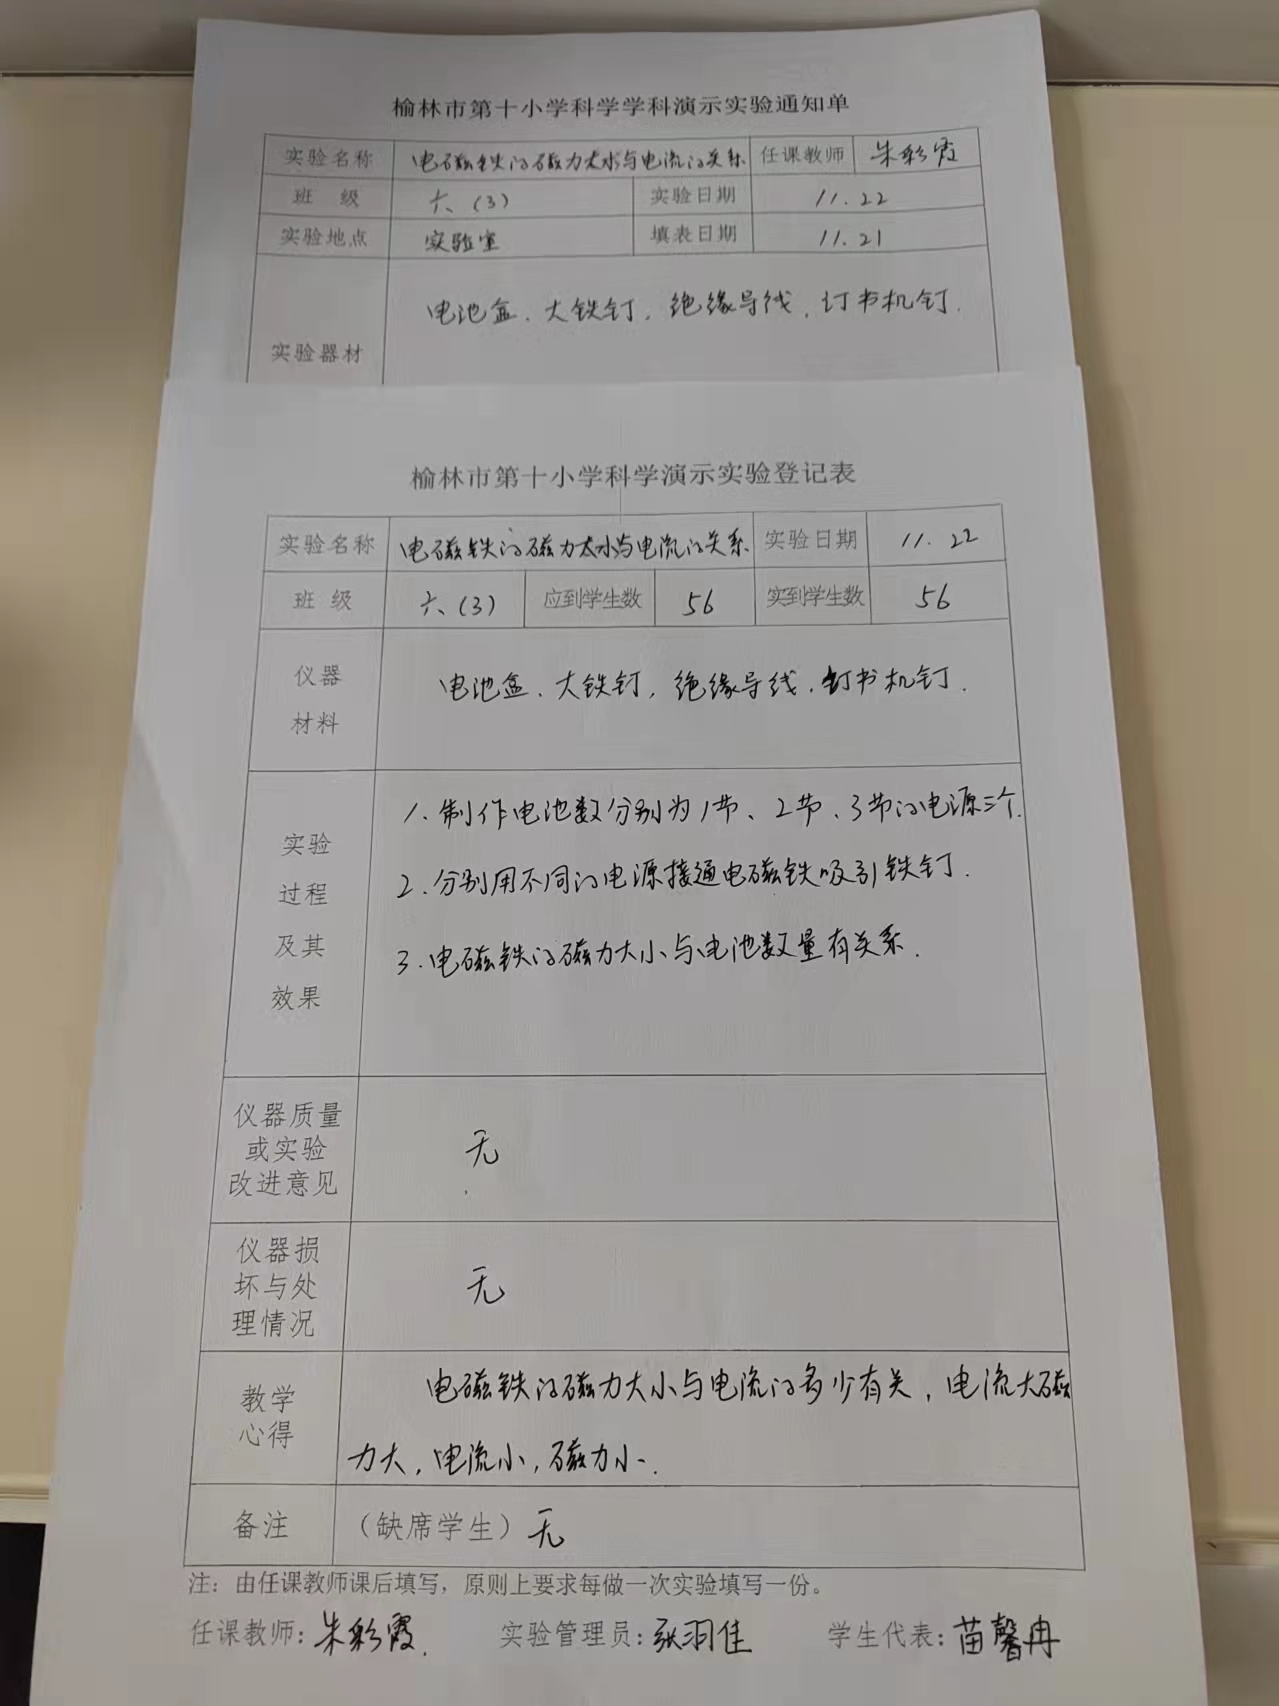 榆林市第十小学科学学科演示实验通知单
实验名称 电磁铁的磁力大小与电流的关系 任课教师 朱彩霞
班 级 六、(3) 实验日期 11.22
实验地点 实验室 填表日期 11.21
实验器材 电池盒、大铁钉,绝缘导线,钉书机钉.
榆林市第十小学科学演示实验登记表
实验名称 电磁铁的磁力大小与电流的关系 实验日期 11.22
班 级 六、(3) 应到学生数 56 实到学生数 56
仪器
材料
电池盒、大铁钉,绝缘导线,钉书机钉.
实验
过程
及其
效果
1.制作电池数分别为1节、2节、3节的电源三个.
2.分别用不同的电源接通电磁铁吸引铁钉.
3.电磁铁的磁力大小与电池数量有关系.
仪器质量
或实验
改进意见
无
仪器损
坏与处
理情况
无
教学
心得
电磁铁的磁力大小与电流的多少有关,电流大磁
力大,电流小,磁力小.
备注 (缺席学生)无
注:由任课教师课后填写,原则上要求每做一次实验填写一份。
任课教师:朱彩霞. 实验管理员:张羽佳 学生代表:苗馨冉